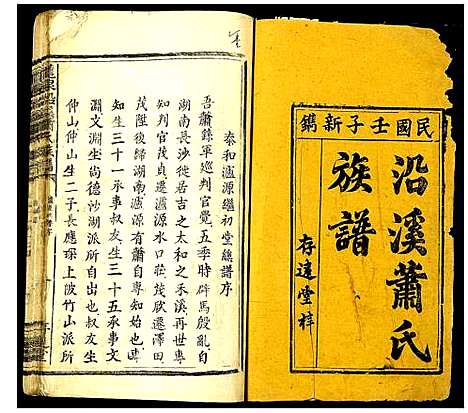 民國壬子新鐫
沿溪蕭氏
族譜
存達堂梓
泰和瀘源繼初堂總譜序
吾蕭錄軍巡判官覺五季時辟馬殷亂自
湖南長沙徙居吉之太和禾溪再世尃
知判官茂貞遷瀘源水口莊茂欣遷澤田
茂陞復歸湖南瀘源有蕭自尃知始尃
知生三十一承事叔友生三十五承事文
淵文淵㘴尚德沙湖派所自出也叔友生
仲山仲山生二子長應琛上陂竹山派所